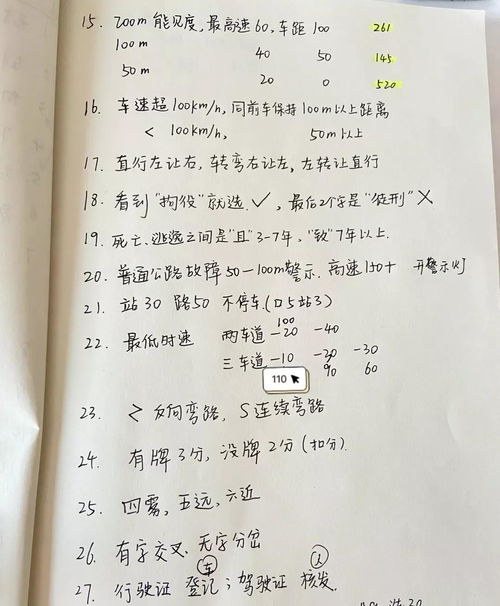 15. 200m 能见度, 最高速60, 车距 100 261
100m 40 50 145
50m 20 0 520
16. 车速超100km/h, 同前车保持100m以上距离
< 100km/h, 50m以上
17. 直行左让右, 转弯右让左, 左转让直行
18. 看到"拘役"就选 ✓, 最后2个字是"徒刑" ✗
19. 死亡、逃逸之间是"且"3-7年, "致"7年以上.
20. 普通公路故障50-100m警示. 高速150+ 开警示灯
21. 站30 路50 不停车.(口5站3)
22. 最低时速 两车道 100
-20 -40
三车道 -10 -20 -30
110 90 60
23. 反向弯路, S连续弯路
24. 有牌3分, 没牌2分(扣分).
25. 四雾, 五远, 六近
26. 有字交叉、无字分岔
27. 行驶证 登记(车); 驾驶证 核发(人).